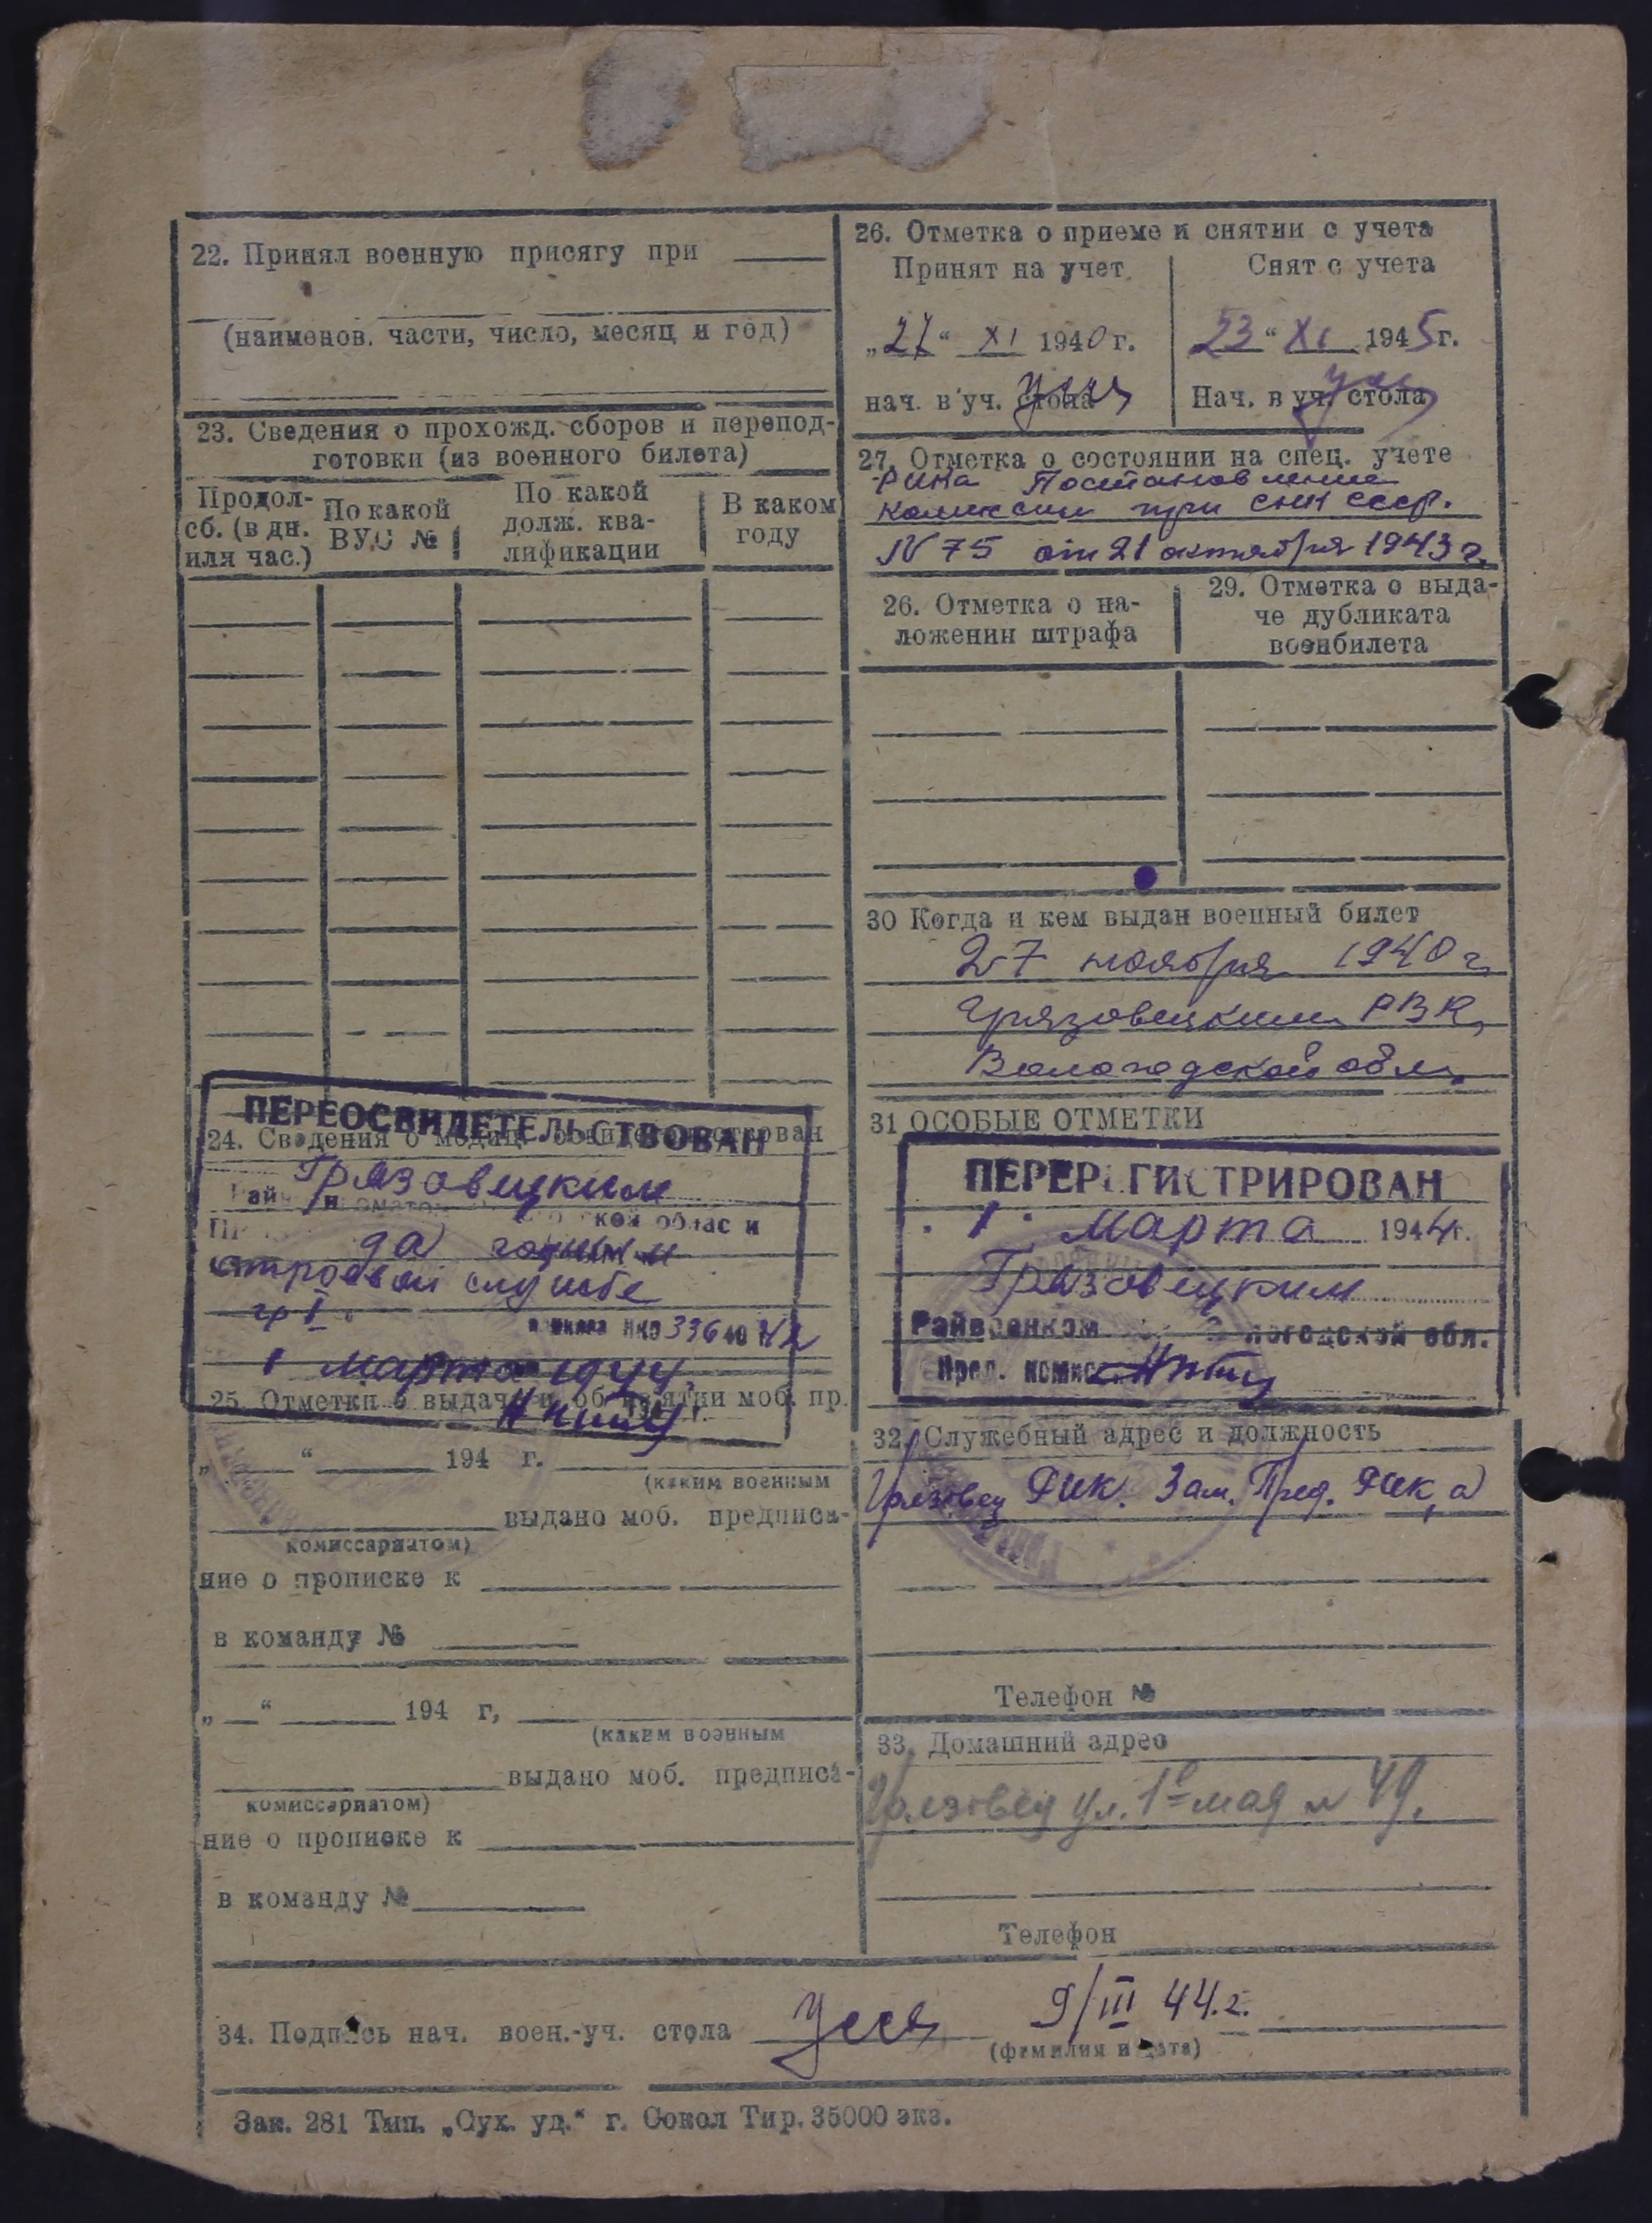 22. Принял военную присягу при
(наименов. части, число, месяц и год)
23. Сведения о прохожд. сборов и перепод-
готовки (из военного билета)
Продол-
сб. (в дн.
или час.)
По какой
ВУС №
По какой
долж. ква-
лификации
В каком
году
ПЕРЕОСВИДЕТЕЛЬСТВОВАН
24. Сведения о
Грязовецким
да годным к
строевой службе
гр I
НКО 336 42
1 марта 1944
25. Отметки о выдаче и об из'ятии моб. пр.
„ “ 194 г.
(каким военным
выдано моб. предписа-
комиссариатом)
ние о прописке к
в команду №
„ “ 194 г,
(каким военным
выдано моб. предписа-
комиссариатом)
ние о прописке к
в команду №
26. Отметка о приеме и снятии с учета
Принят на учет
„27“ XI 1940 г.
нач. в уч. стола
Снят с учета
23 “ XI 1945 г.
Нач. в уч. стола
27. Отметка о состоянии на спец. учете
Рика Постановление
комиссии при СНК СССР.
N 75 от 21 октября 1943 г.
26. Отметка о на-
ложении штрафа
29. Отметка о выда-
че дубликата
военбилета
30 Когда и кем выдан военный билет
27 ноября 1940 г.
Грязовецким РВК,
Вологодской обл.
31 ОСОБЫЕ ОТМЕТКИ
ПЕРЕРЕГИСТРИРОВАН
1 марта 1944 г.
Грязовецким
Райвоенком Вологодской обл.
Пред. комис
32. Служебный адрес и должность
Грязовец РИК. Зам. Пред. РИК,а
Телефон №
33. Домашний адрес
Грязовец ул. 1е мая N 49.
Телефон
34. Подпись нач. воен.-уч. стола 9/III 44.г.
(фамилия и дата)
Зак. 281 Тип. „Сух. уд.“ г. Сокол Тир. 35000 экз.